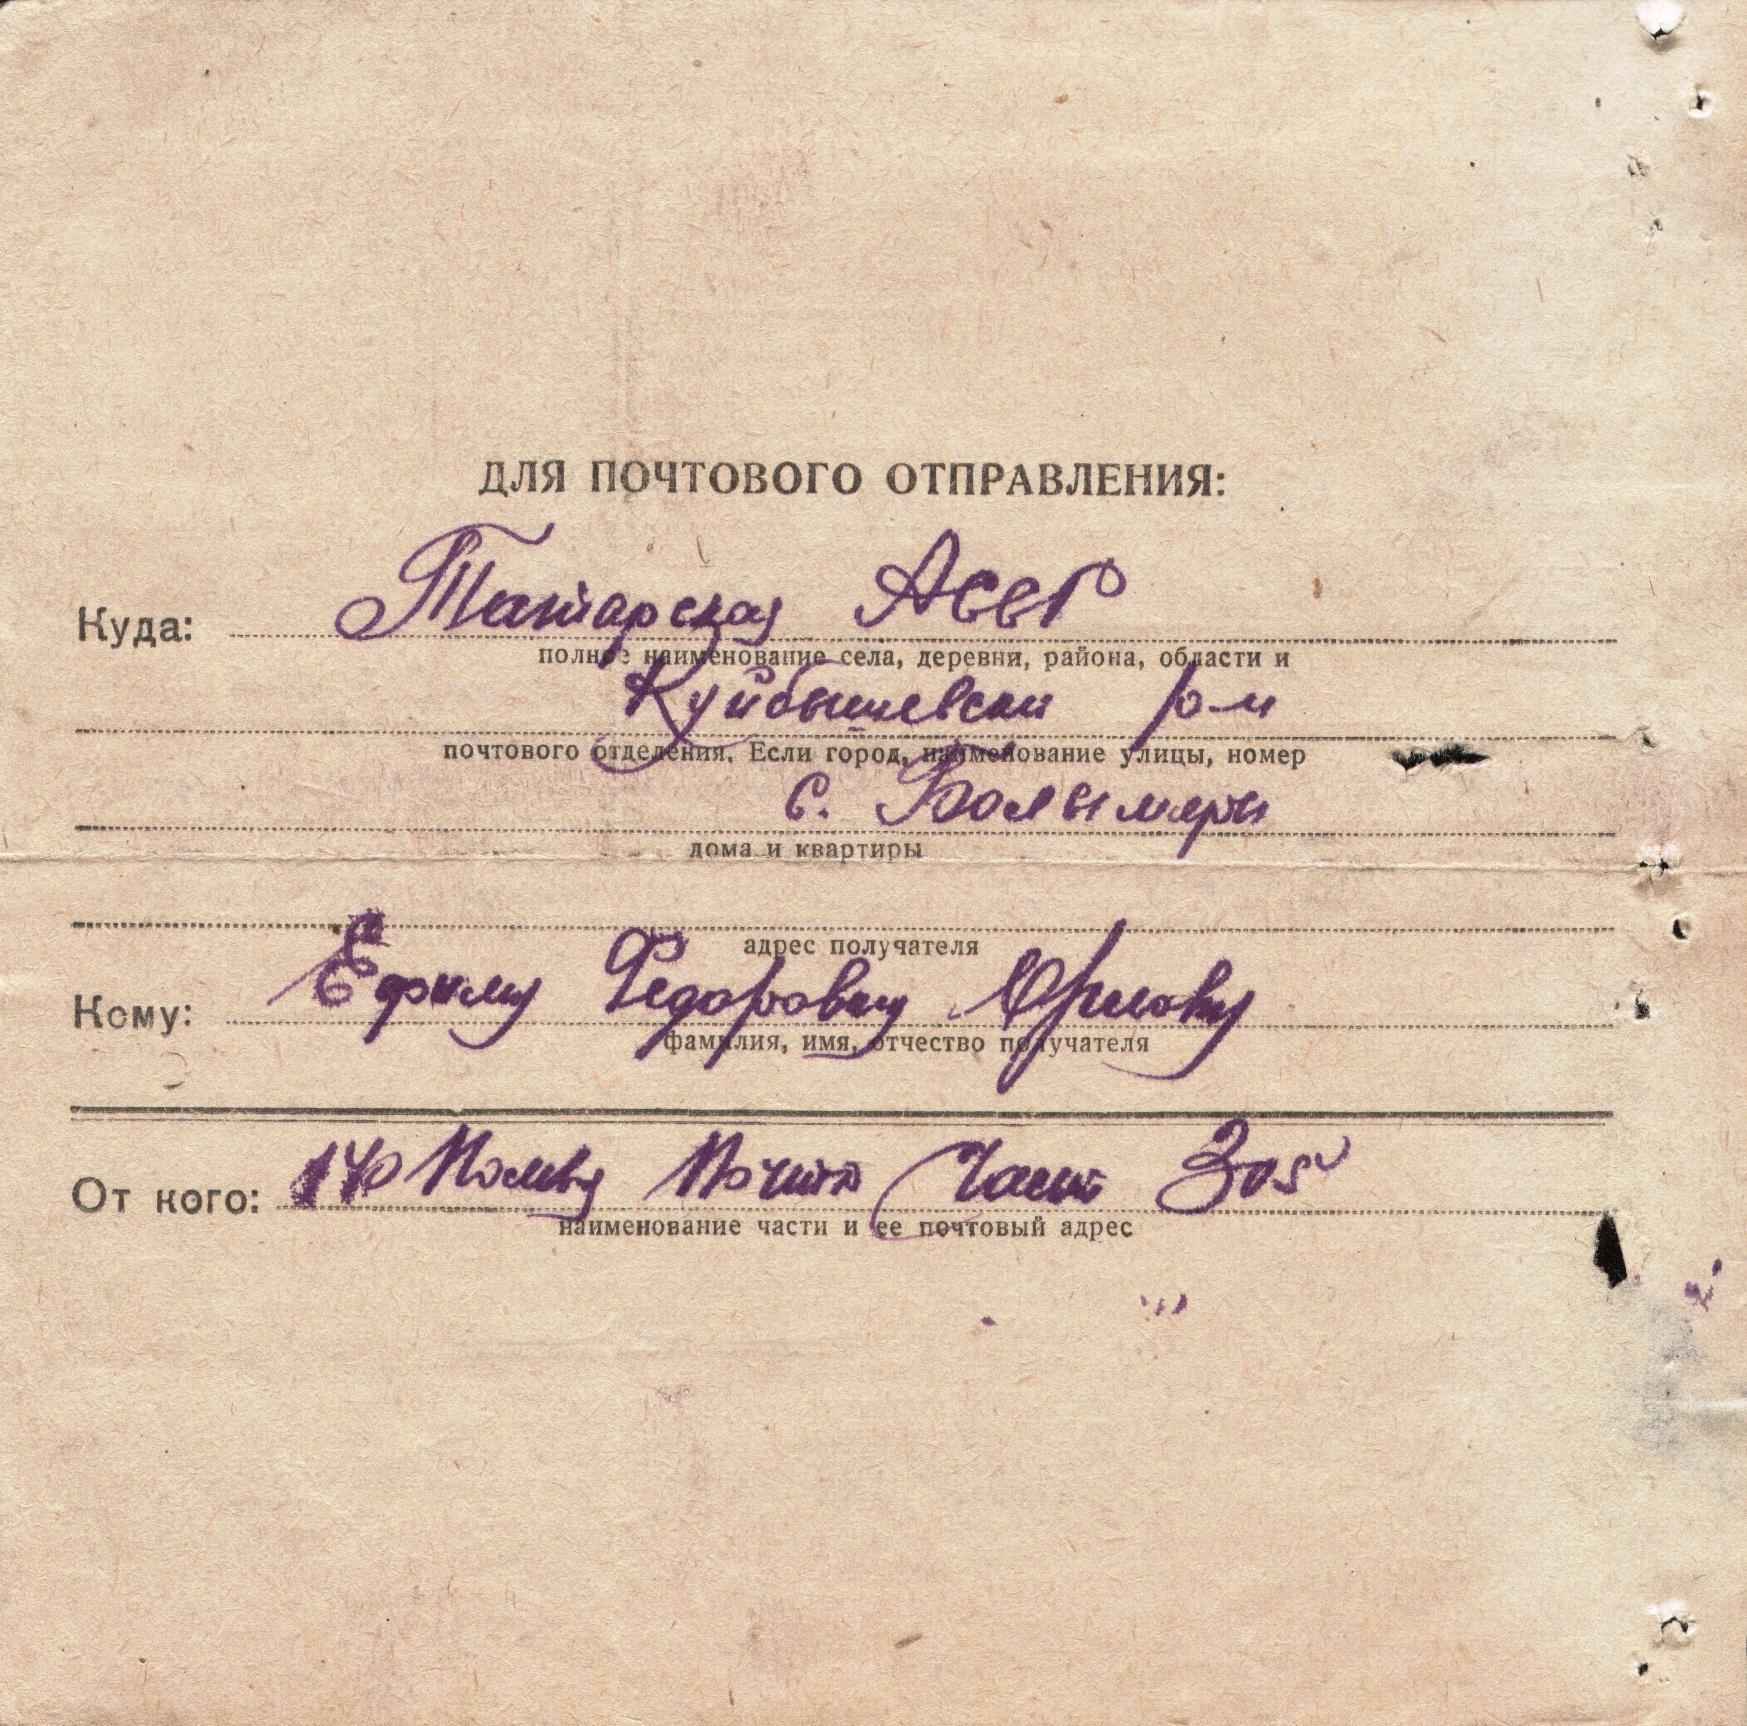 ДЛЯ ПОЧТОВОГО ОТПРАВЛЕНИЯ:
Куда: Татарская АССР
полное наименование села, деревни, района, области и
Куйбышевски р-н
почтового отделения. Если город, наименование улицы, номер
с. Болымеры
дома и квартиры
адрес получателя
Кому: Ефиму Федоровичу Орлову
фамилия, имя, отчество получателя
От кого: Полева Почта Часть 305
наименование части и ее почтовый адрес